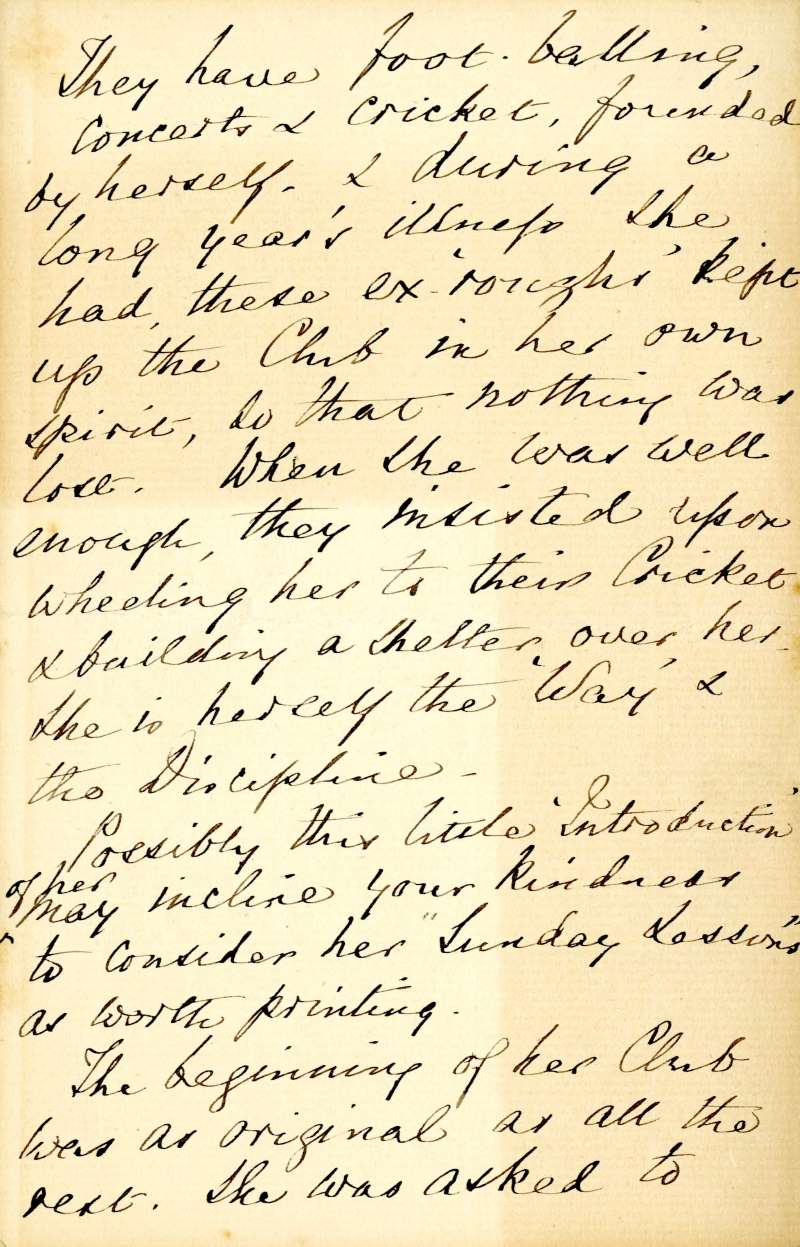 They have foot-balling,
concerts & cricket, founded
by herself. & during a
long year's illness she
had, these ex-'roughs' kept
up the Club in her own
spirit, so that nothing was
lost. When she was well
enough, they insisted upon
wheeling her to their Cricket
& building a shelter over her.
She is herself the 'Way' &
the Discipline -
Possibly this little 'Introduction'
of her
may incline your kindness
to consider her "Sunday Lessons"
as worth printing.
The beginning of her Club
was as original as all the
rest. She was asked to